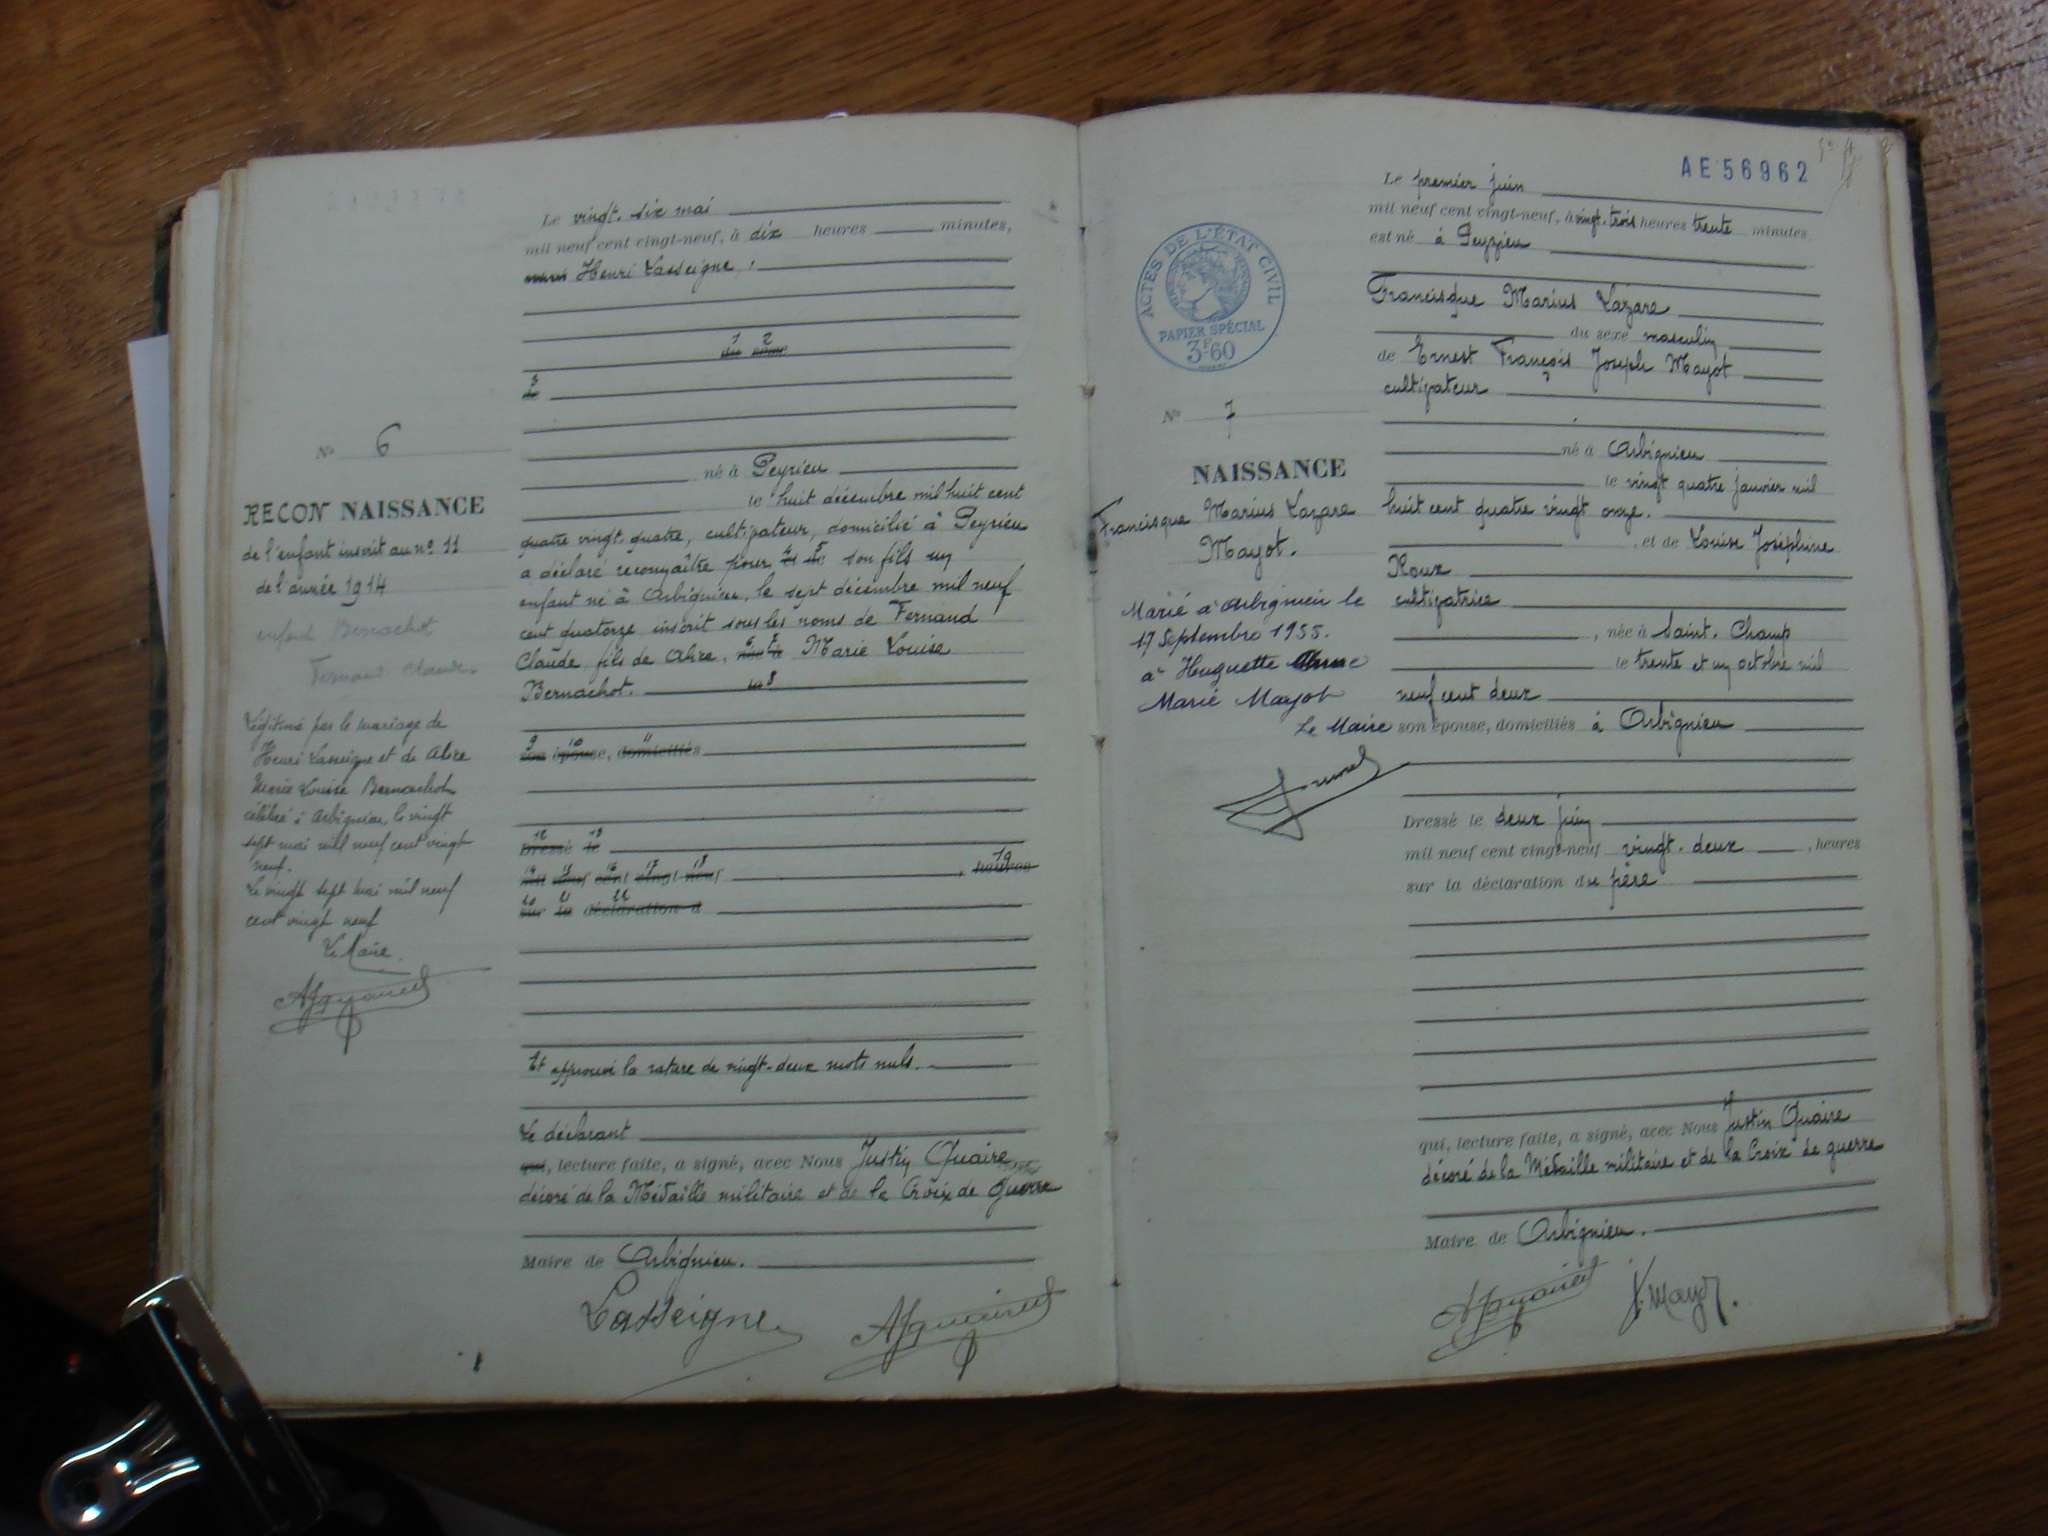 Le vingt-six mai
mil neuf cent vingt-neuf, à dix heures minutes,
Henri Lasseigne,
1 2
du sexe
3
né à Peyrieu
le huit décembre mil huit cent
quatre vingt quatre, cultivateur, domicilié à Peyrieu
a déclaré reconnaître pour son fils un
enfant né à Arbignieu, le sept décembre mil neuf
cent quatorze inscrit sous les noms de Fernand
Claude, fils de Alice, Marie Louise
Bernachot.
9 10 11
son épouse, domiciliés
12 13
Dressé le
14 15 16 17 18 19
mil neuf cent vingt-neuf, heures
20 21 22
sur la déclaration d
Et approuvé la rature de vingt-deux mots nuls.
Le déclarant
qui, lecture faite, a signé, avec Nous Justin Quaire
décoré de la Médaille militaire et de la Croix de Guerre
Maire de Arbignieu.
Lasseigne
No 6
RECON NAISSANCE
de l'enfant inscrit au no 11
de l'année 1914
enfant Bernachot
Fernand Claude
Légitimé par le mariage de
Henri Lasseigne et de Alice
Marie Louise Bernachot
célébré à Arbignieu, le vingt
sept mai mil neuf cent vingt
neuf.
Le vingt sept mai mil neuf
cent vingt neuf
Le Maire
AE56962
ACTES DE L'ÉTAT CIVIL
PAPIER SPÉCIAL
3F60
No 7
NAISSANCE
Francisque Marius Lazare
Mayot.
Marié à Arbignieu le
17 Septembre 1955.
à Huguette
Marie Mayot
Le Maire
Le premier juin
mil neuf cent vingt-neuf, à vingt-trois heures trente minutes
est né à Peyzieu
Francisque Marius Lazare
du sexe masculin
de Ernest François Joseph Mayot
cultivateur
né à Arbignieu
le vingt quatre janvier mil
huit cent quatre vingt onze.
, et de Louise Joséphine
Roux
cultivatrice
, née à Saint-Champ
le trente et un octobre mil
neuf cent deux
son épouse, domiciliés à Arbignieu
Dressé le deux juin
mil neuf cent vingt-neuf vingt-deux , heures
sur la déclaration du père
qui, lecture faite, a signé, avec Nous Justin Quaire
décoré de la Médaille militaire et de la Croix de guerre
Maire de Arbignieu.
Mayot.